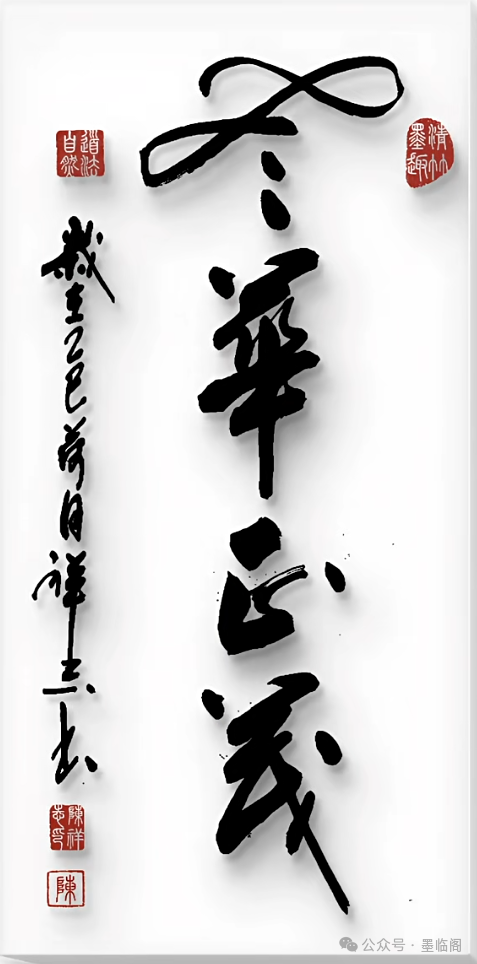 清竹墨趣
風華正茂
道法自然
歲在乙巳荷月祥志書
陳祥志印
陳
公众号 · 墨临阁